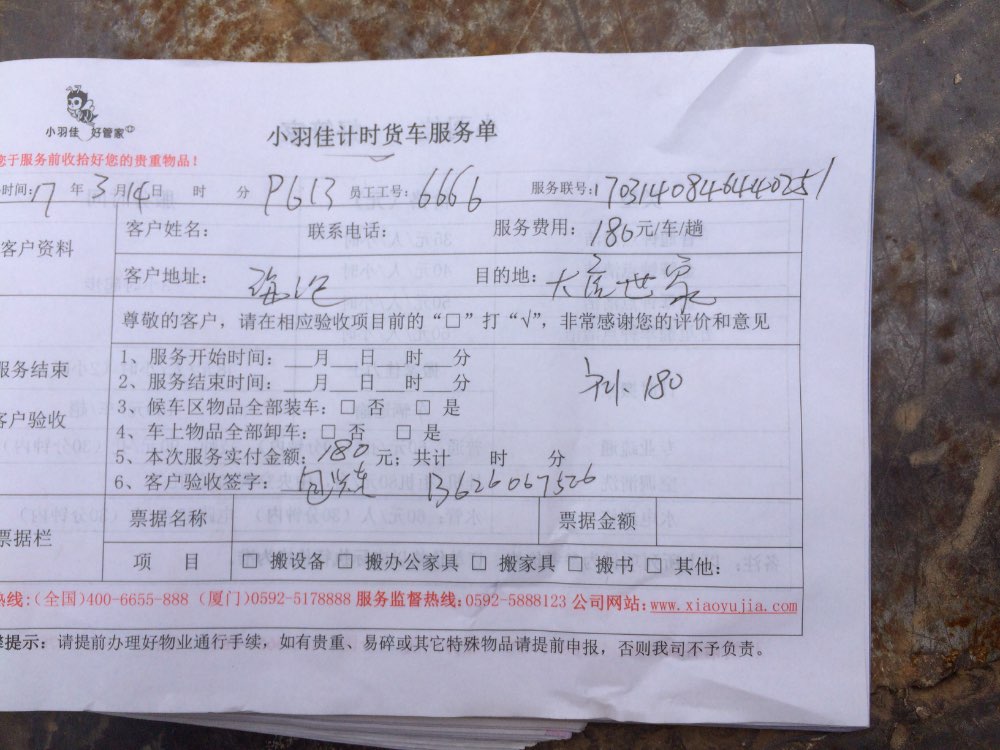 小羽佳 好管家
小羽佳计时货车服务单
您于服务前收拾好您的贵重物品！
时间:17 年 3 月 14 日 时 分 PG13 员工工号: 6666 服务联号:1703140846440251
客户资料
客户姓名: 联系电话: 服务费用: 180元/车/趟
客户地址: 目的地: 大唐世家
尊敬的客户，请在相应验收项目前的“□”打“√”，非常感谢您的评价和意见
服务结束
客户验收
1、服务开始时间: 月 日 时 分
2、服务结束时间: 月 日 时 分
180
3、候车区物品全部装车: □ 否 □ 是
4、车上物品全部卸车: □ 否 □ 是
5、本次服务实付金额: 180 元; 共计 时 分
6、客户验收签字: 13626067526
票据栏
票据名称 票据金额
项 目 □ 搬设备 □ 搬办公家具 □ 搬家具 □ 搬书 □ 其他:
热线:(全国)400-6655-888 (厦门)0592-5178888 服务监督热线:0592-5888123 公司网站:www.xiaoyujia.com
提示: 请提前办理好物业通行手续，如有贵重、易碎或其它特殊物品请提前申报，否则我司不予负责。